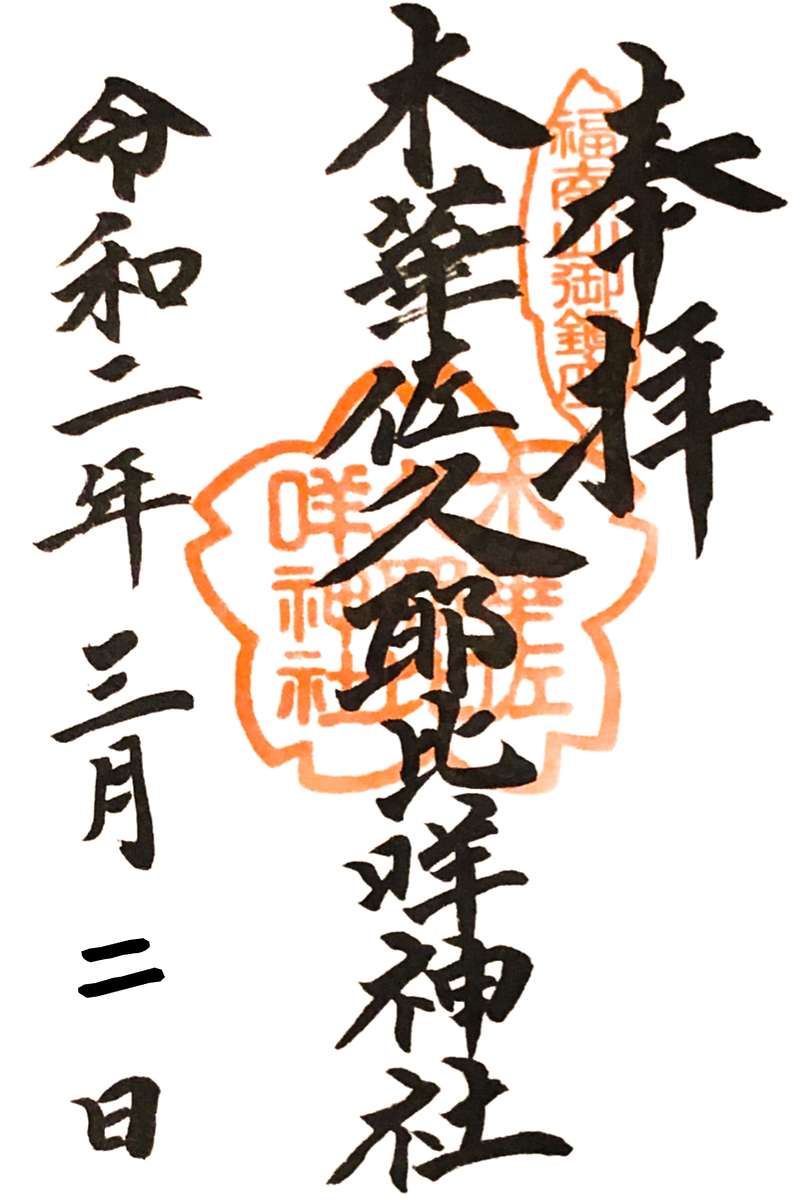 奉拝
福南山御鎮座
木華佐久耶比咩神社
木華佐
久耶比
咩神社
令和二年 三月 二 日